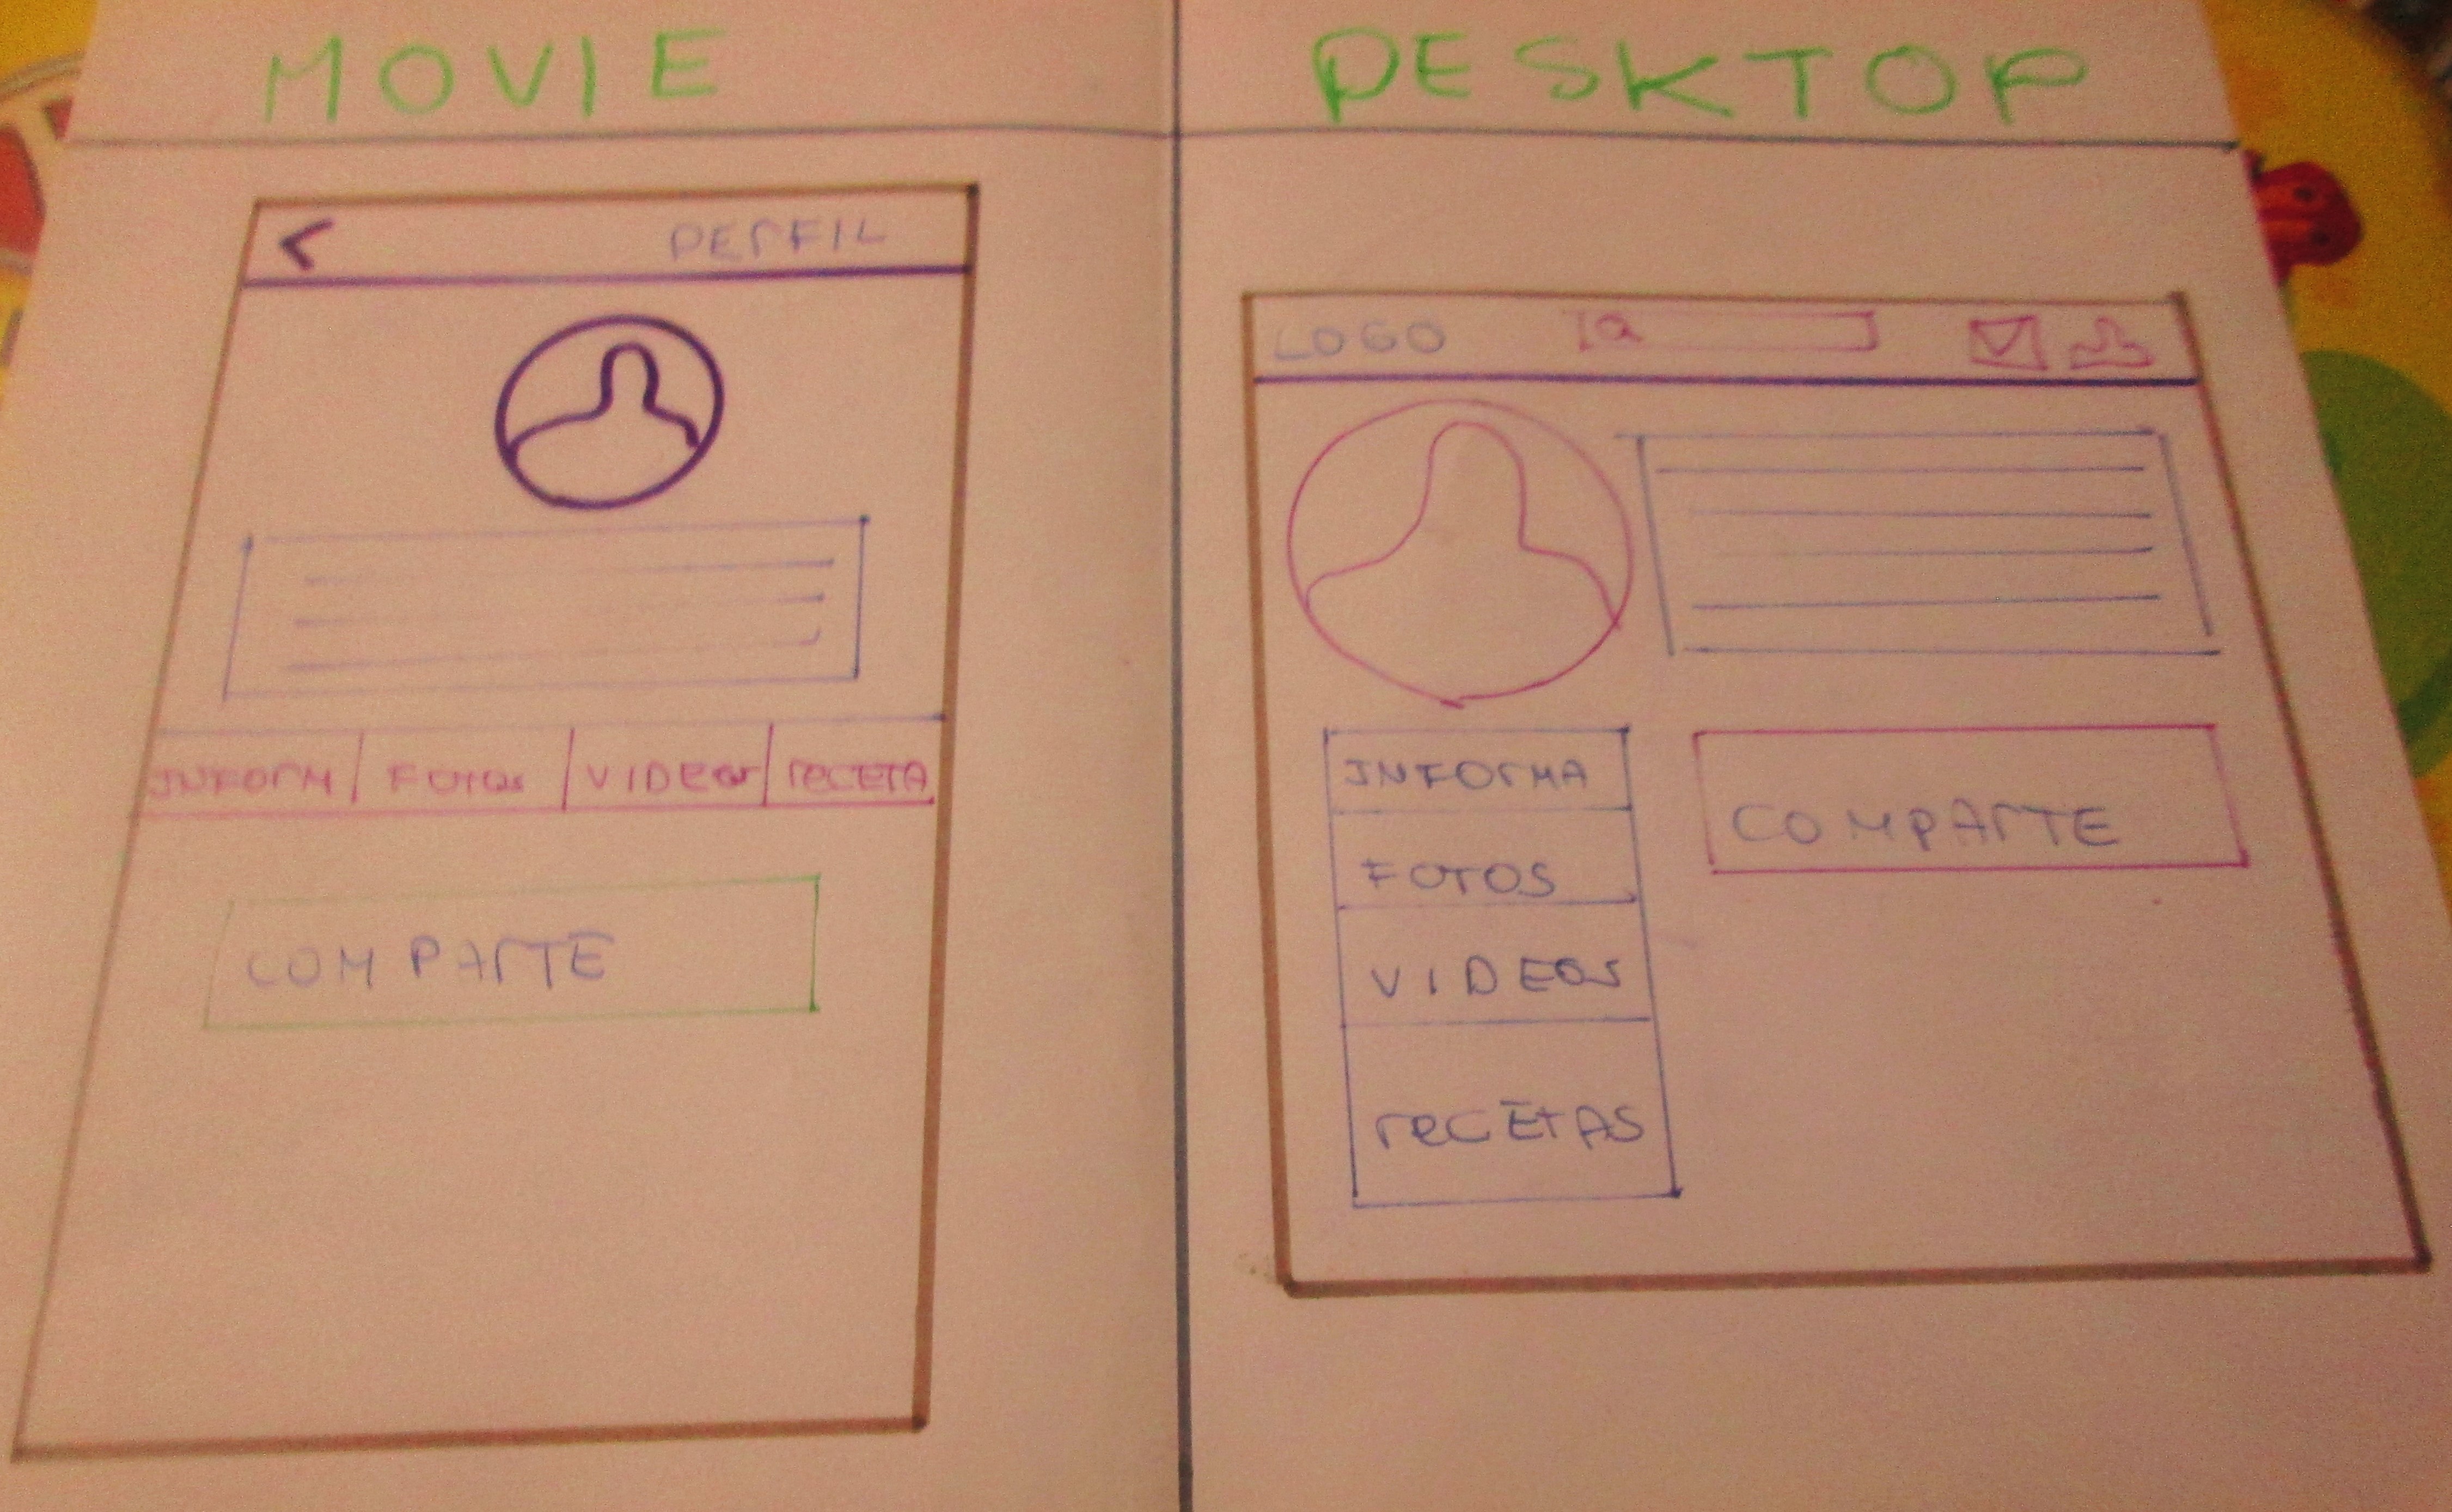 MOVIE
PERFIL
INFORM FOTOS VIDEOS RECETA
COMPARTE
DESKTOP
LOGO
INFORMA
COMPARTE
FOTOS
VIDEOS
RECETAS